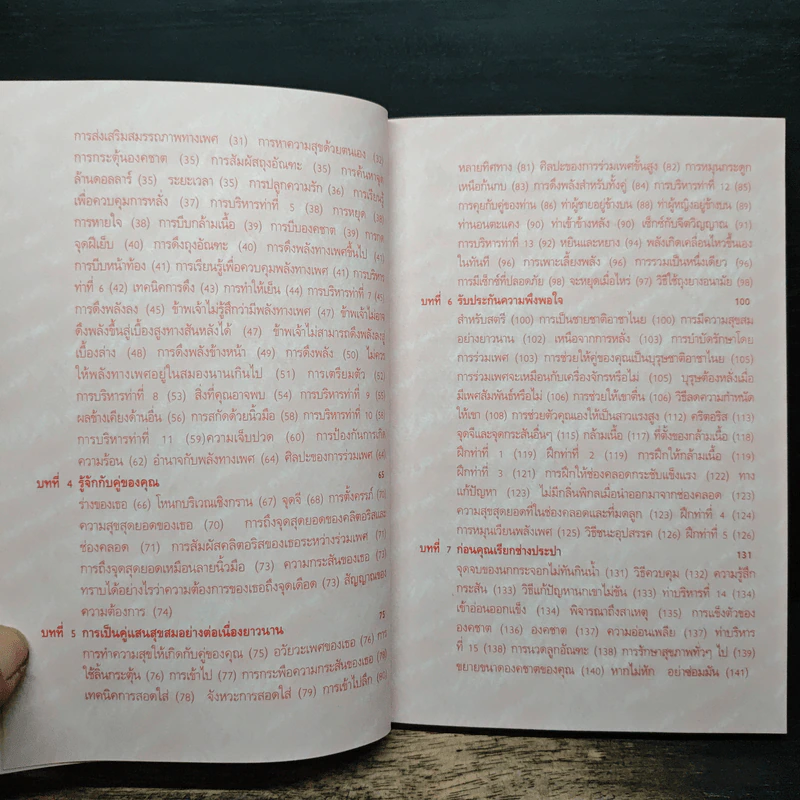 การส่งเสริมสมรรถภาพทางเพศ (31) การหาความสุขด้วยตนเอง (32)
การกระตุ้นองคชาต (35) การสัมผัสถุงอัณฑะ (35) การค้นหาจุด
ล้านดอลลาร์ (35) ระยะเวลา (35) การปลูกความรัก (36) การเรียนรู้
เพื่อควบคุมการหลั่ง (37) การบริหารท่าที่ 5 (38) การหยุด (38)
การหายใจ (38) การบีบกล้ามเนื้อ (39) การบีบองคชาต (39) การกด
จุดฝีเย็บ (40) การดึงถุงอัณฑะ (40) การดึงพลังทางเพศขึ้นไป (41)
การบีบหน้าท้อง (41) การเรียนรู้เพื่อควบคุมพลังทางเพศ (41) การบริหาร
ท่าที่ 6 (42) เทคนิคการดึง (43) การทำให้เย็น (44) การบริหารท่าที่ 7 (45)
การดึงพลังลง (45) ข้าพเจ้าไม่รู้สึกว่ามีพลังทางเพศ (47) ข้าพเจ้าไม่อาจ
ดึงพลังขึ้นสู่เบื้องสูงทางสันหลังได้ (47) ข้าพเจ้าไม่สามารถดึงพลังลงสู่
เบื้องล่าง (48) การดึงพลังข้างหน้า (49) การดึงพลัง (50) ไม่ควร
ให้พลังทางเพศอยู่ในสมองนานเกินไป (51) การเตรียมตัว (52)
การบริหารท่าที่ 8 (53) สิ่งที่คุณอาจพบ (54) การบริหารท่าที่ 9 (55)
ผลข้างเคียงด้านอื่น (56) การสกัดด้วยนิ้วมือ (58) การบริหารท่าที่ 10 (58)
การบริหารท่าที่ 11 (59)ความเจ็บปวด (60) การป้องกันการเกิด
ความร้อน (62) อำนาจกับพลังทางเพศ (64) ศิลปะของการร่วมเพศ (64)
บทที่ 4 รู้จักกับคู่ของคุณ 65
ร่างของเธอ (66) โหนกบริเวณเชิงกราน (67) จุดจี (68) การตั้งครรภ์ (69)
ความสุขสุดยอดของเธอ (70) การถึงจุดสุดยอดของคลิตอริสและ
ช่องคลอด (71) การสัมผัสคลิตอริสของเธอระหว่างร่วมเพศ (71)
การถึงจุดสุดยอดเหมือนลายนิ้วมือ (73) ความกระสันของเธอ (73)
ทราบได้อย่างไรว่าความต้องการของเธอถึงจุดเดือด (73) สัญญาณของ
ความต้องการ (74)
บทที่ 5 การเป็นคู่แสนสุขสมอย่างต่อเนื่องยาวนาน 75
การทำความสุขให้เกิดกับคู่ของคุณ (75) อวัยวะเพศของเธอ (76) การ
ใช้ลิ้นกระตุ้น (76) การเข้าไป (77) การกระพือความกระสันของเธอ (77)
เทคนิคการสอดใส่ (78) จังหวะการสอดใส่ (79) การเข้าไปลึก
หลายทิศทาง (81) ศิลปะของการร่วมเพศขั้นสูง (82) การหมุนกระดูก
เหนือก้นกบ (83) การดึงพลังสำหรับทั้งคู่ (84) การบริหารท่าที่ 12 (85)
การคุยกับคู่ของท่าน (86) ท่าผู้ชายอยู่ข้างบน (88) ท่าผู้หญิงอยู่ข้างบน (89)
ท่านอนตะแคง (90) ท่าเข้าข้างหลัง (90) เซ็กซ์กับจิตวิญญาณ (91)
การบริหารท่าที่ 13 (92) หยินและหยาง (94) พลังเกิดเคลื่อนไหวขึ้นเอง
ในทันที (96) การเพาะเลี้ยงพลัง (96) การรวมเป็นหนึ่งเดียว (96)
การมีเซ็กซ์ที่ปลอดภัย (98) จะหยุดเมื่อไหร่ (97) วิธีใช้ถุงยางอนามัย (98)
บทที่ 6 รับประกันความพึงพอใจ 100
สำหรับสตรี (100) การเป็นชายชาติอาชาไนย (100) การมีความสุขสม
อย่างยาวนาน (102) เหนือจากการหลั่ง (103) การบำบัดรักษาโดย
การร่วมเพศ (103) การช่วยให้คู่ของคุณเป็นบุรุษชาติอาชาไนย (105)
การร่วมเพศจะเหมือนกับเครื่องจักรหรือไม่ (105) บุรุษต้องหลั่งเมื่อ
มีเพศสัมพันธ์หรือไม่ (106) การช่วยให้เขาตื่น (106) วิธีลดความกำหนัด
ให้เขา (108) การช่วยตัวคุณเองให้เป็นสาวแรงสูง (112) คริตอริส (113)
จุดจีและจุดกระสันอื่นๆ (115) กล้ามเนื้อ (117) ที่ตั้งของกล้ามเนื้อ (118)
ฝึกท่าที่ 1 (119) ฝึกท่าที่ 2 (119) การฝึกให้กล้ามเนื้อ (119) ฝึก
ท่าที่ 3 (121) การฝึกให้ช่องคลอดกระชับแข็งแรง (122) ทาง
แก้ปัญหา (123) ไม่มีกลิ่นพิกลเมื่อนำออกมาจากช่องคลอด (123)
ความสุขสุดยอดที่ในช่องคลอดและที่มดลูก (123) ฝึกท่าที่ 4 (124)
การหมุนเวียนพลังเพศ (125) วิธีชนะอุปสรรค (126) ฝึกท่าที่ 5 (126)
บทที่ 7 ก่อนคุณเรียกช่างประปา 131
จุดจบของนกกระจอกไม่ทันกินน้ำ (131) วิธีควบคุม (132) ความรู้สึก
กระสัน (133) วิธีแก้ปัญหานกเขาไม่ขัน (133) ท่าบริหารที่ 14 (134)
เข้าอ่อนออกแข็ง (134) พิจารณาถึงสาเหตุ (135) การแข็งตัวของ
องคชาต (136) องคชาต (136) ความอ่อนเพลีย (137) ท่าบริหาร
ที่ 15 (138) การนวดลูกอัณฑะ (138) การรักษาสุขภาพทั่วๆ ไป (139)
ขยายขนาดองคชาตของคุณ (140) หากไม่หัก อย่าซ่อมมัน (141)